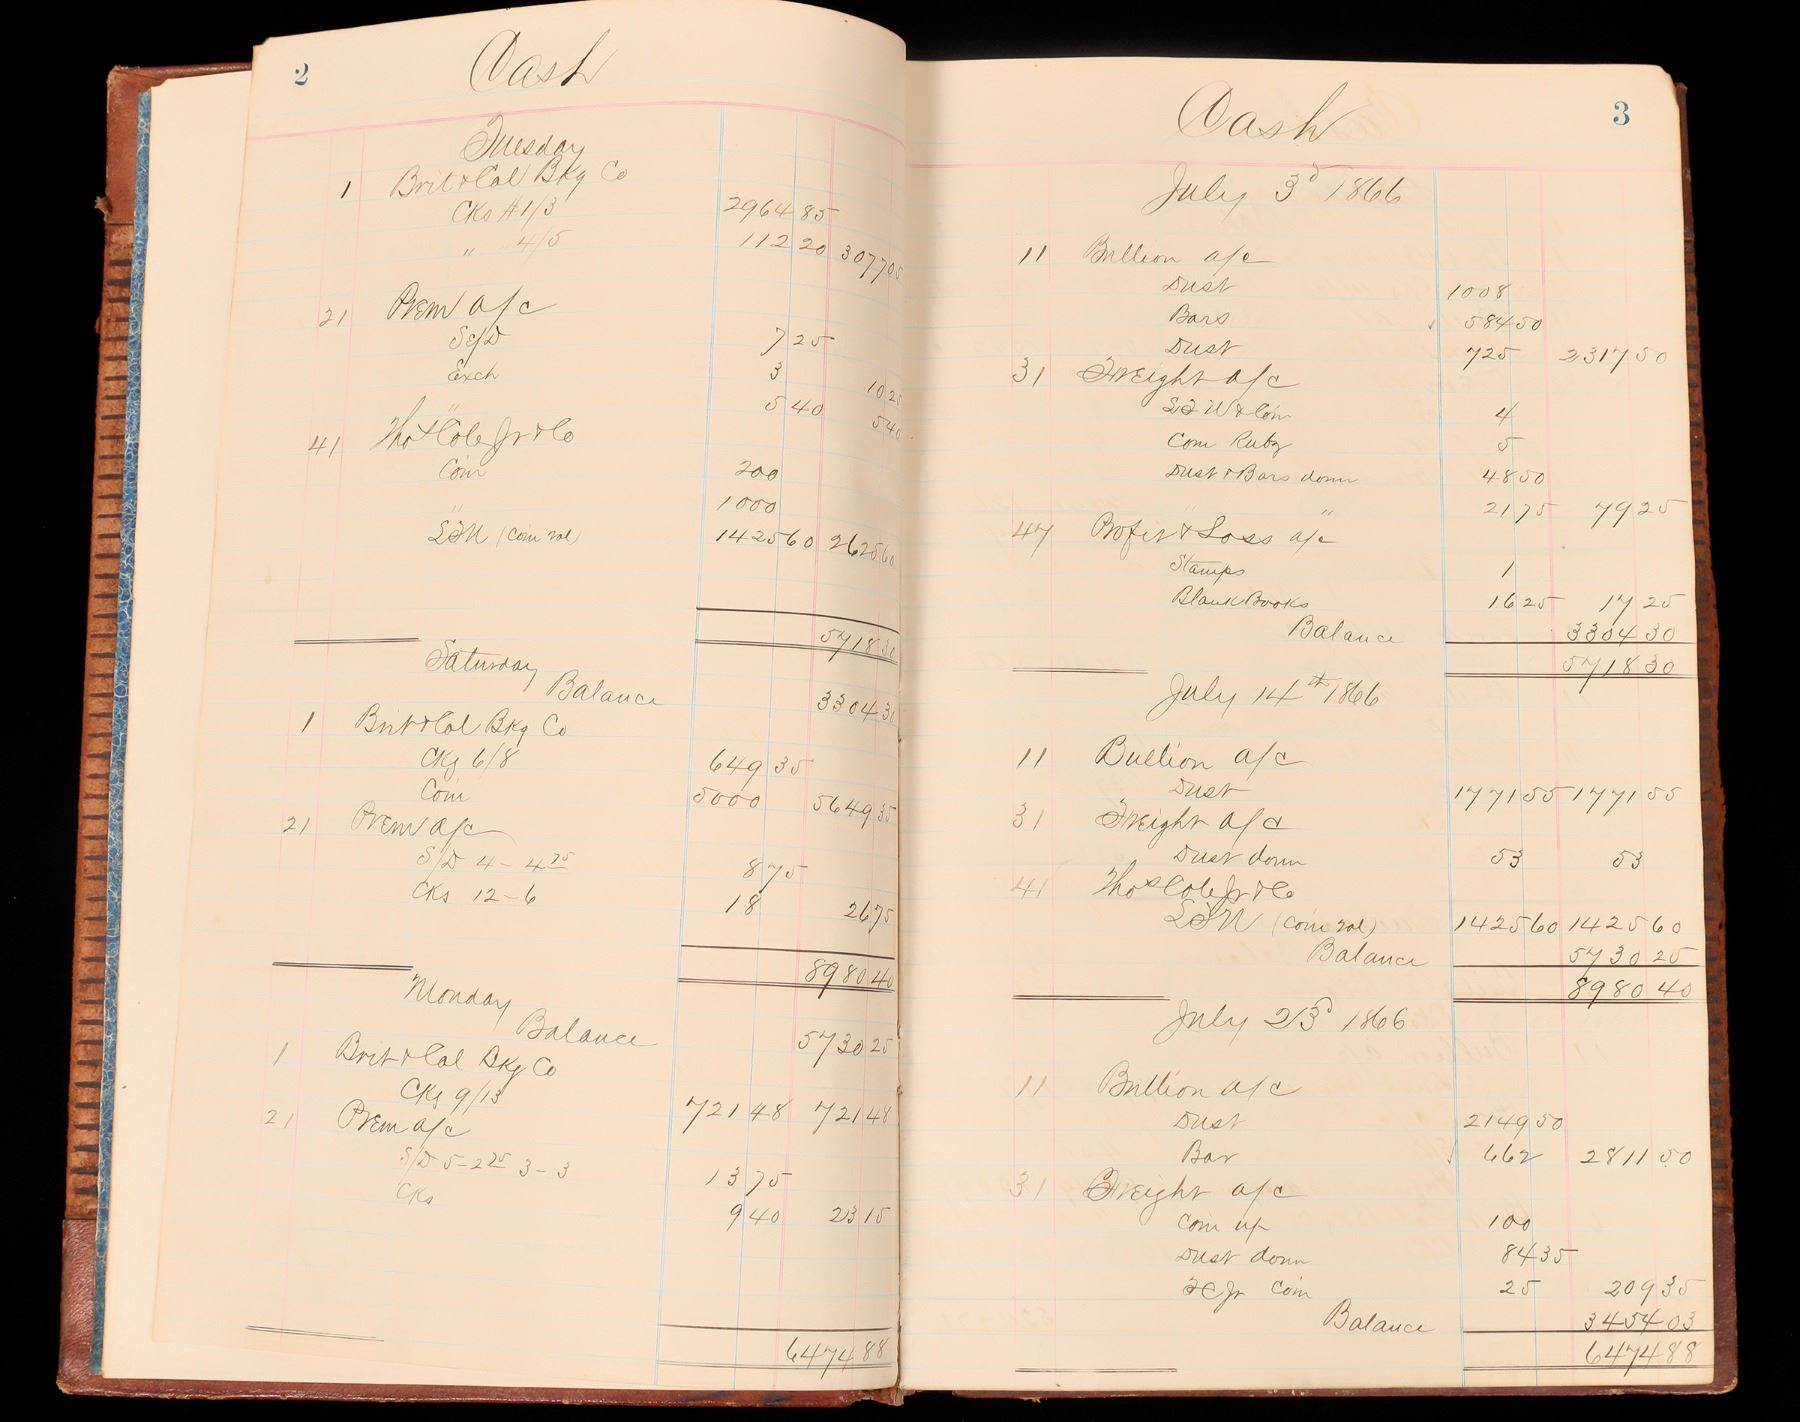 2
Cash
Tuesday
1 Brit & Col Bkg Co
Cks #1/3 2964 85
" " 4/5 112 20 3077 05
21 Prem a/c
S/D 7 25
Exch 3 10 25
" 5 40 5 40
41 Thos Cole Jr & Co
Coin 200
" 1000
(Coin 1425 60 2625 60
5718 30
Saturday
Balance 3304 30
1 Brit & Col Bkg Co
Cks 6/8 649 35
Coin 5000 5649 35
21 Prem a/c
S/D 4 - 4 75 8 75
Cks 12 - 6 18 26 75
8980 40
Monday
Balance 5730 25
1 Brit & Col Bkg Co
Cks 9/13 721 48 721 48
21 Prem a/c
S/D 5 - 2 75 3 - 3 13 75
Cks 9 40 23 15
6474 88
3
Cash
July 3d 1866
11 Bullion a/c
Dust 1008
Bars 584 50
Dust 725 2317 50
31 Freight a/c
4
5
Dust & Bars down 48 50
" " 21 75 79 25
47 Profit & Loss a/c
Stamps 1
Blank Books 16 25 17 25
Balance 3304 30
5718 30
July 14th 1866
11 Bullion a/c
Dust 1771 55 1771 55
31 Freight a/c
Dust down 53 53
41 Thos Cole Jr & Co
(Coin 1425 60 1425 60
Balance 5730 25
8980 40
July 23d 1866
11 Bullion a/c
Dust 2149 50
Bar 662 2811 50
31 Freight a/c
Coin up 100
Dust down 84 35
Jr Coin 25 209 35
Balance 3454 03
6474 88